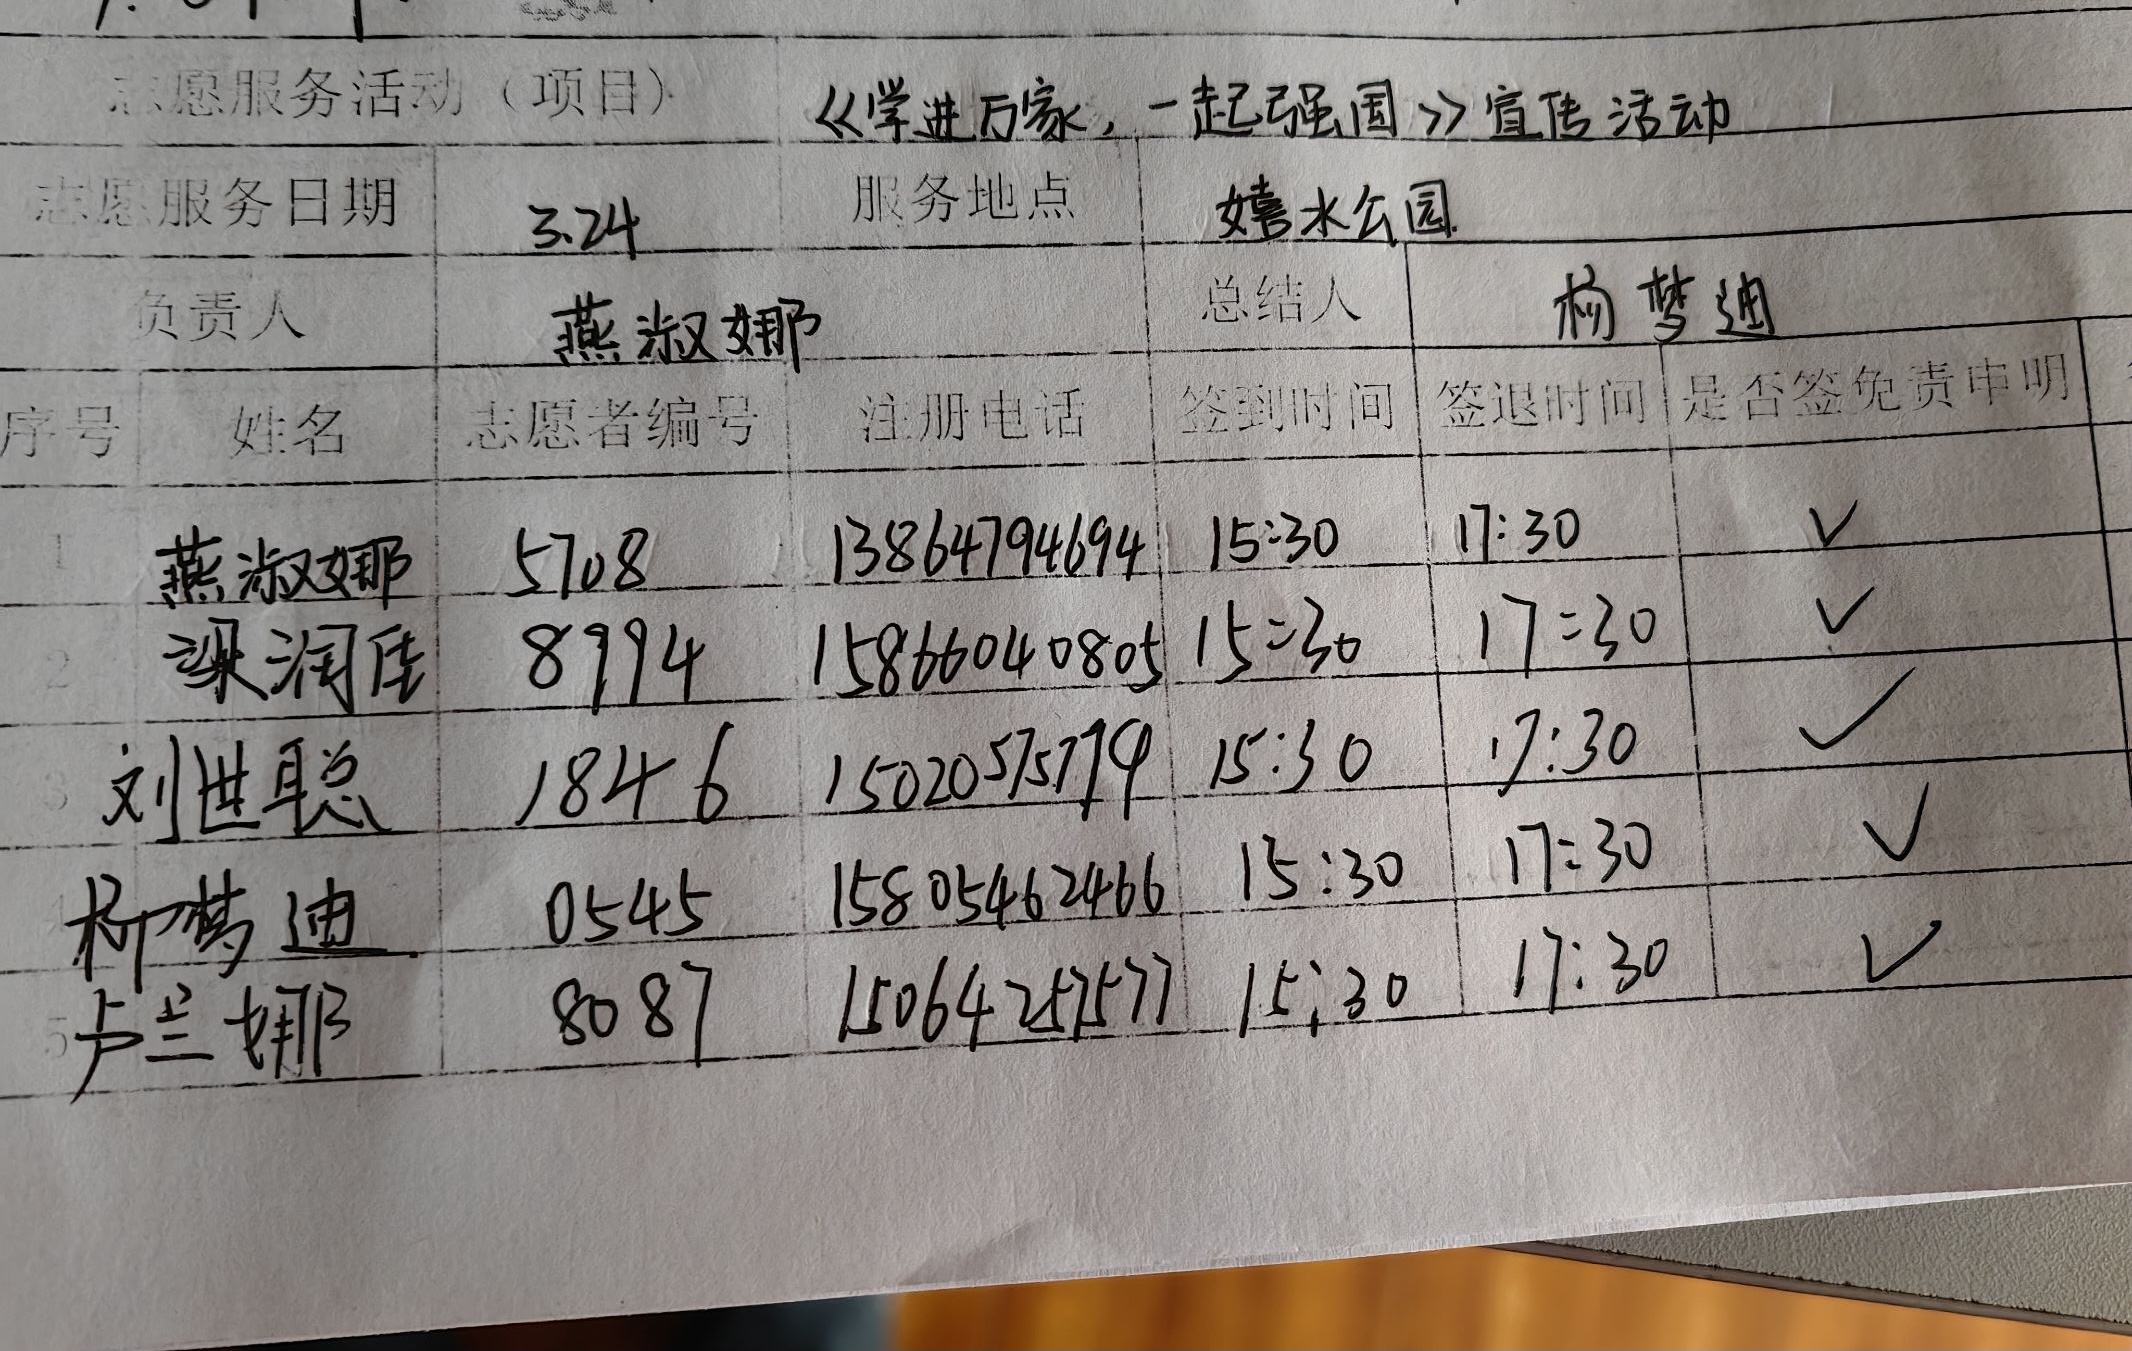 志愿服务活动（项目） 《学进万家，一起强国》宣传活动
志愿服务日期 3.24 服务地点 嬉水公园
负责人 燕淑娜 总结人 杨梦迪
序号 姓名 志愿者编号 注册电话 签到时间 签退时间 是否签免责申明
1 燕淑娜 5708 13864794694 15:30 17:30 ✓
2 梁润佳 8994 15866040805 15:30 17:30 ✓
3 刘进聪 1846 15020575779 15:30 17:30 ✓
4 柳梦迪 0545 15805462466 15:30 17:30 ✓
5 卢兰娜 8087 15064257577 15:30 17:30 ✓